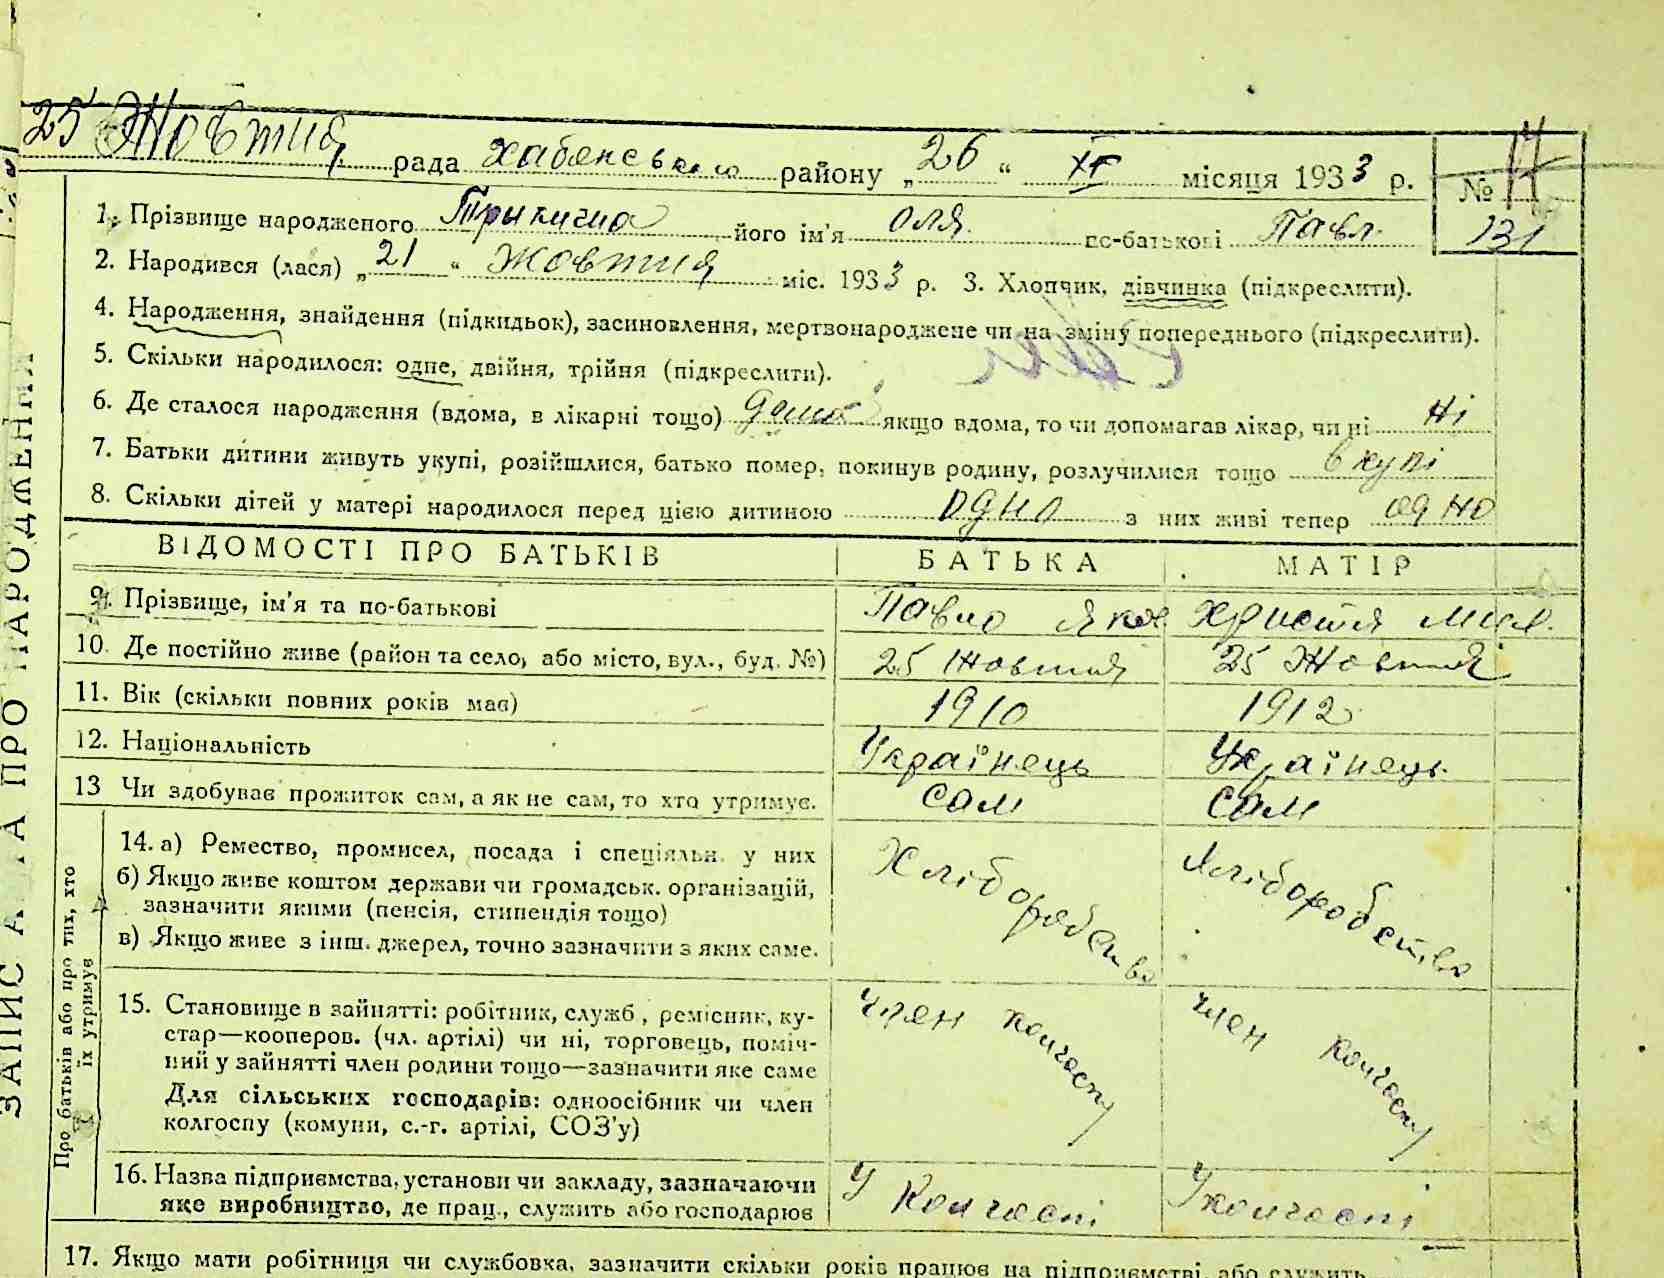 25 Жовтня рада хабенського району „26“ XI місяця 1933 р. №
131
1. Прізвище народженого його ім'я Оля по-батькові Павл.
2. Народився (лася) „21“ Жовтня міс. 1933 р. 3. Хлопчик, дівчинка (підкреслити).
4. Народження, знайдення (підкидьок), засиновлення, мертвонароджене чи на зміну попереднього (підкреслити).
5. Скільки народилося: одне, двійня, трійня (підкреслити).
6. Де сталося народження (вдома, в лікарні тощо) дома якщо вдома, то чи допомагав лікар, чи ні Ні
7. Батьки дитини живуть укупі, розійшлися, батько помер, покинув родину, розлучилися тощо вкупі
8. Скільки дітей у матері народилося перед цією дитиною одно з них живі тепер одно
ВІДОМОСТІ ПРО БАТЬКІВ БАТЬКА МАТІР
9. Прізвище, ім'я та по-батькові Павло Яков. Христя
10. Де постійно живе (район та село, або місто, вул., буд. №) 25 Жовтня 25 Жовтня
11. Вік (скільки повних років має) 1910 1912
12. Національність Українець Українець
13 Чи здобуває прожиток сам, а як не сам, то хто утримує. Сам Сам
14. а) Ремество, промисел, посада і спеціяльн. у них Хліборобство Хліборобство
б) Якщо живе коштом держави чи громадськ. організацій,
зазначити якими (пенсія, стипендія тощо)
в) Якщо живе з інш. джерел, точно зазначити з яких саме.
15. Становище в зайнятті: робітник, служб., ремісник, ку-
стар—кооперов. (чл. артілі) чи ні, торговець, поміч-
ний у зайнятті член родини тощо—зазначити яке саме
Для сільських господарів: одноосібник чи член
колгоспу (комуни, с.-г. артілі, СОЗ'у)
Член колгоспу Член колгоспу
16. Назва підприємства, установи чи закладу, зазначаючи
яке виробництво, де прац., служить або господарює
У Колгоспі У колгоспі
17. Якщо мати робітниця чи службовка, зазначити скільки років працює на підприємстві, або служить
ЗАПИС АКТА ПРО НАРОДЖЕННЯ
Про батьків або про тих, хто
їх утримує